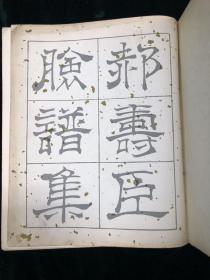 郝壽臣
臉譜集